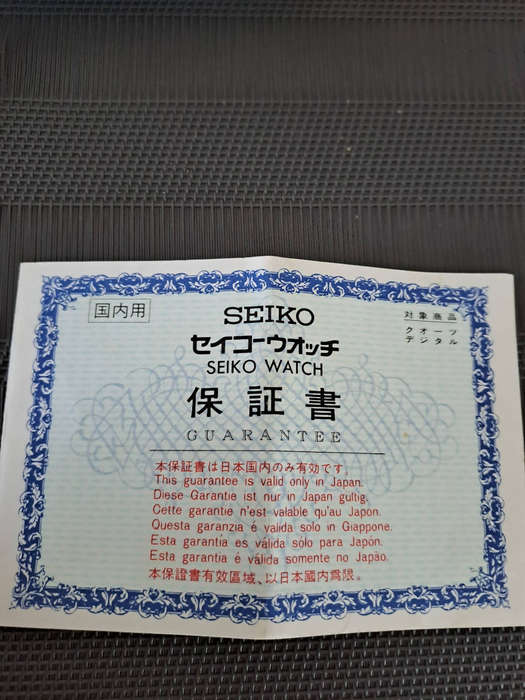 国内用
SEIKO
対象商品
クオーツ
デジタル
セイコーウオッチ
SEIKO WATCH
保証書
GUARANTEE
本保証書は日本国内のみ有効です。
This guarantee is valid only in Japan.
Diese Garantie ist nur in Japan gültig.
Cette garantie n'est valable qu'au Japon.
Questa garanzia é valida solo in Giappone.
Esta garantía es válida sólo para Japón.
Esta garantia é válida somente no Japão.
本保證書有效區域、以日本國内爲限。